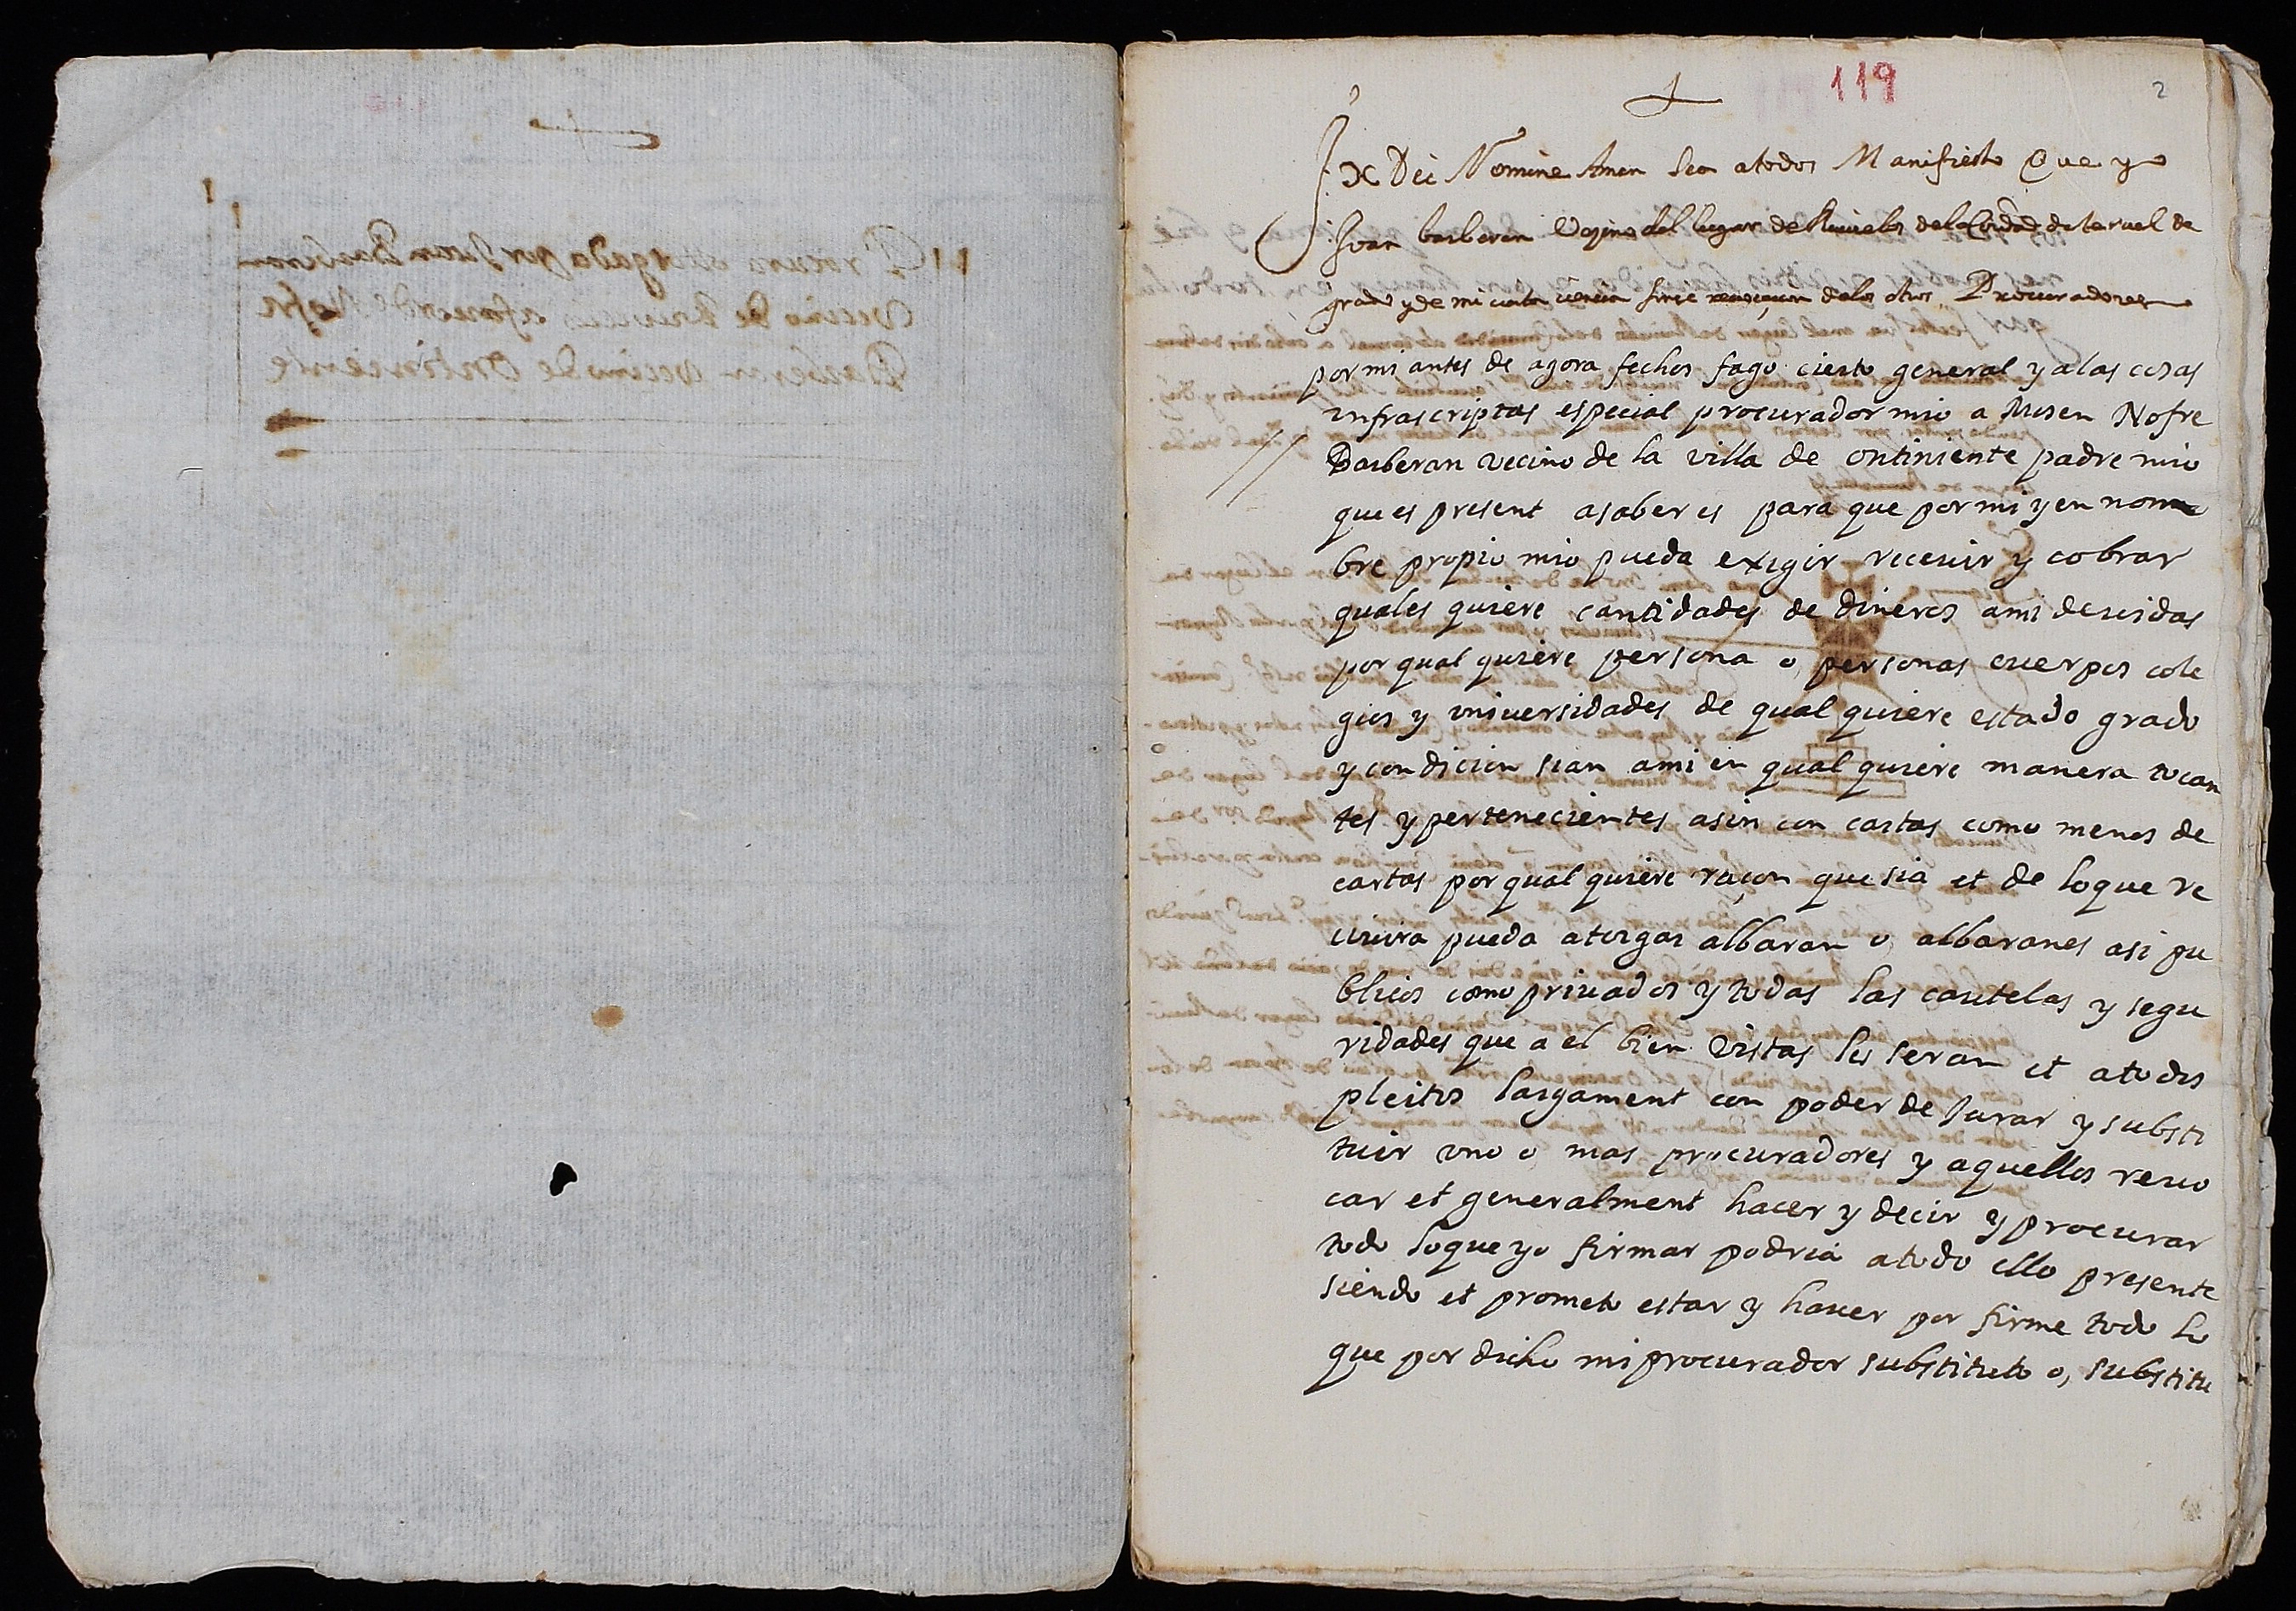 119
2
In Dei Nomine Amen Sea atodos Manifiesto Que yo
Joan barberan Vezino del lugar de Ruuielos dela Comūdad de teruel de
grado y de mi cierta ciencia sinse reuocacion delos otros Procuradores
por mi antes de agora fechos fago cierto general y a las cosas
infrascriptas especial procurador mio a Mosen Nofre
Barberan vecino de la villa de ontiniente padre mio
que es present asaber es para que por mi y en nom
bre propio mio pueda exigir receuir y cobrar
quales quiere cantidades de dineros ami deuidas
por qual quiere persona o personas cuerpos cole
gios y vniuersidades de qual quiere estado grado
y condicion sian ami en qual quiere manera tocan
tes y pertenecientes asin con cartas como menos de
cartas por qual quiere raçon que sia et de loque re
ciuira pueda atorgar albaran o albaranes asi pu
blicos como priuados y todas las cautelas y segu
ridades que a el bien vistas les seran et atodos
pleitos largament con poder de Jurar y substi
tuir vno o mas procuradores y aquellos reuo
car et generalment hacer y decir y procurar
todo loque yo firmar podria atodo ello presente
siendo et prometo estar y hauer por firme todo lo
que por dicho mi procurador substituto o, substitu
Procura attorgada por Juan Barberan
vecino de Ruuielos afauor de Nofre
Barberan vecino de Ontiniente